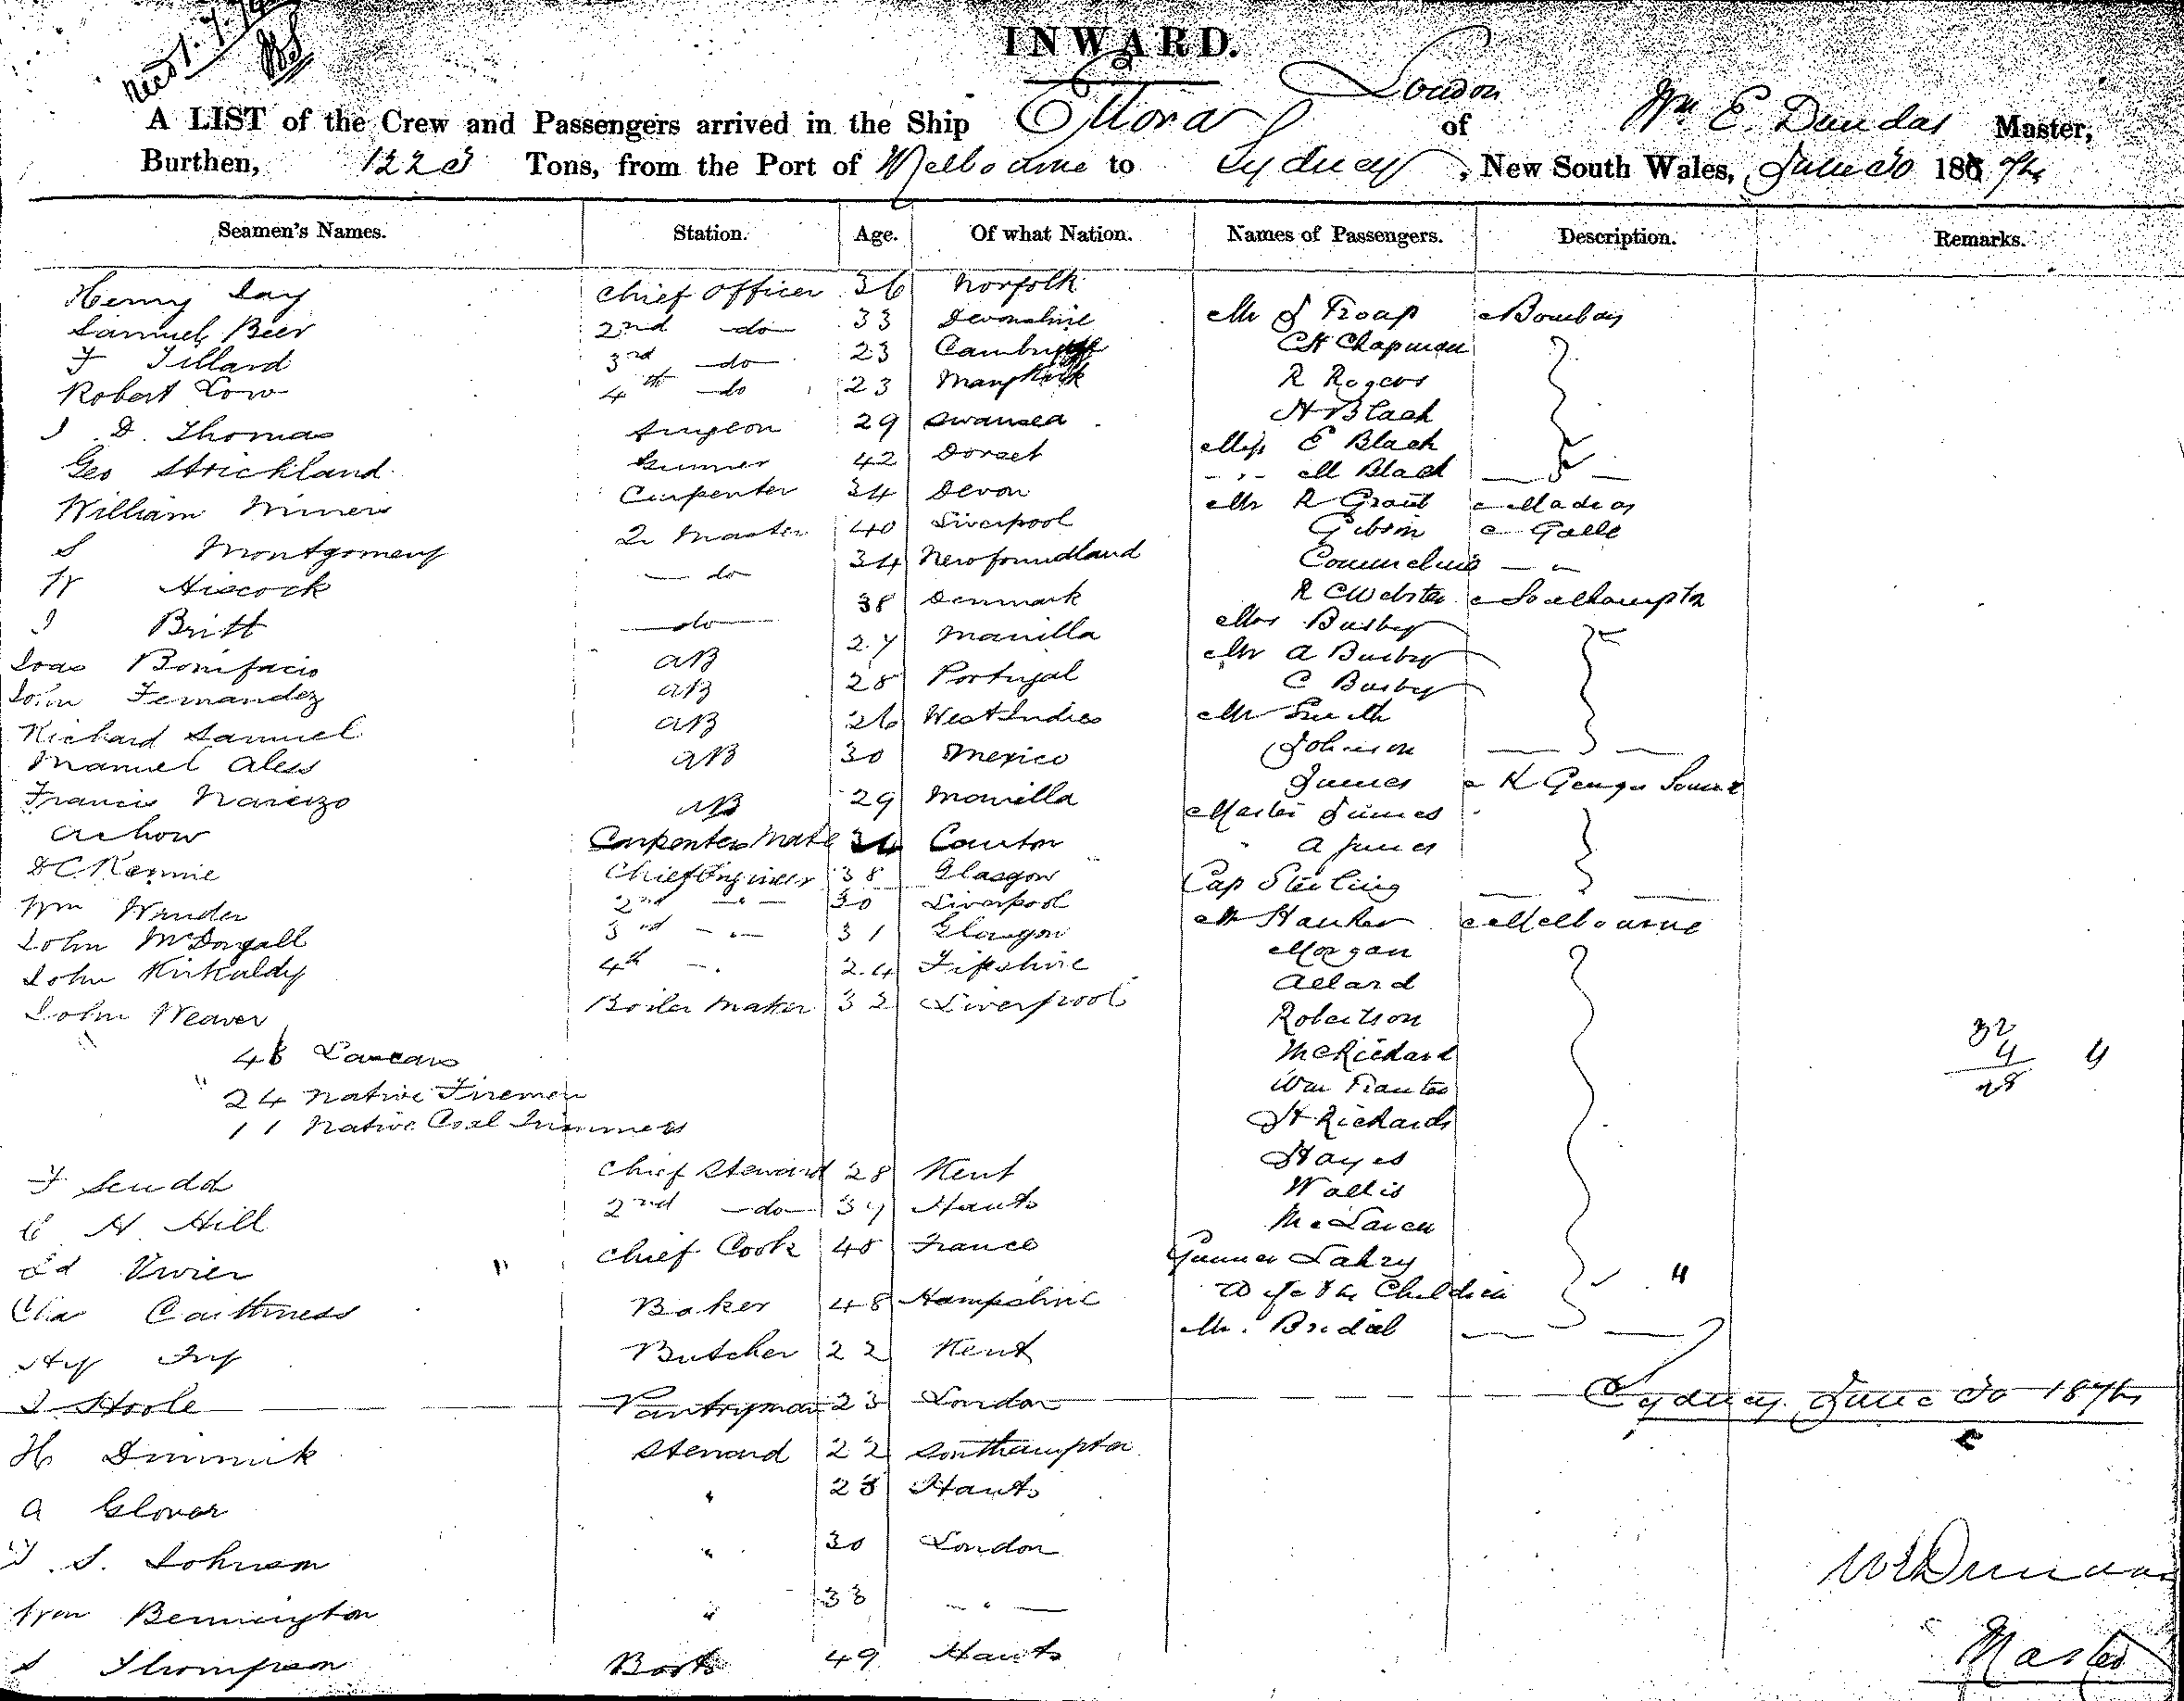 INWARD.
A LIST of the Crew and Passengers arrived in the Ship Ellora of London Wm E. Dundas Master,
Burthen, 1223 Tons, from the Port of Melbourne to Sydney, New South Wales, June 30 187
Seamen's Names. Station. Age. Of what Nation. Names of Passengers. Description. Remarks.
Henry Day Chief Officer 36 Norfolk
Samuel Beer 2nd do 33 Devonshire Mr Troap Bombay
F Tillard 3rd do 23 Cambridge CH Chapman
Robert Low 4th do 23 R Rogers
J. D. Thomas Surgeon 29 Swansea H Black
Geo Strickland Gunner 42 Dorset Miss E Black
William Miners Carpenter 34 Devon M Black
S Montgomery Q Master 40 Liverpool Mr R Grant Madras
W Hiscock do 34 Newfoundland Gibson Galle
J Britt do 38 Denmark R C Webster Southampton
Joao Bonifacio AB 27 Manilla Mrs Busby
John Fernandez AB 28 Portugal Mr A Busby
Richard Samuel AB 26 West Indies C Busby
Manuel Aless AB 30 Mexico Mr Smith
Francis Narcizo AB 29 Manilla Johnson
Achow Carpenters Mate 34 Canton James K George Sound
D C Rennie Chief Engineer 38 Glasgow Master James
Wm Winder 2nd 30 Liverpool A James
John McDougall 3rd 31 Glasgow Cap Sterling
John Kirkaldy 4th 24 Fifeshire Mr Hanker Melbourne
John Weaver Boiler Maker 32 Liverpool Morgan
Allard
Robertson
48 Lascars McRickard
24 Native Firemen Wm
11 Native Coal Trimmers H Richards
32
4
28
4
F Scudd Chief Steward 28 Kent Hayes
C H Hill 2nd do 37 Hants Wallis
Ed Vivier Chief Cook 48 France McLaren
Cha Caithness Baker 48 Hampshire Gunner Lahey
Wife & Children
Hy Butcher 22 Kent Mr. Bridal
J Hoole Pantryman 23 London Sydney June 30 187
H Dimmik Steward 22 Southampton
A Glover " 28 Hants
J. S. Johnson " 30 London
Wm Bennington " 33 "
S Thompson Boots 49 Hants
W E Dundas
Master